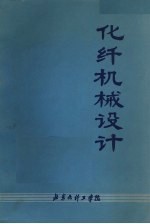 化纤机械设计
北京化纤工学院